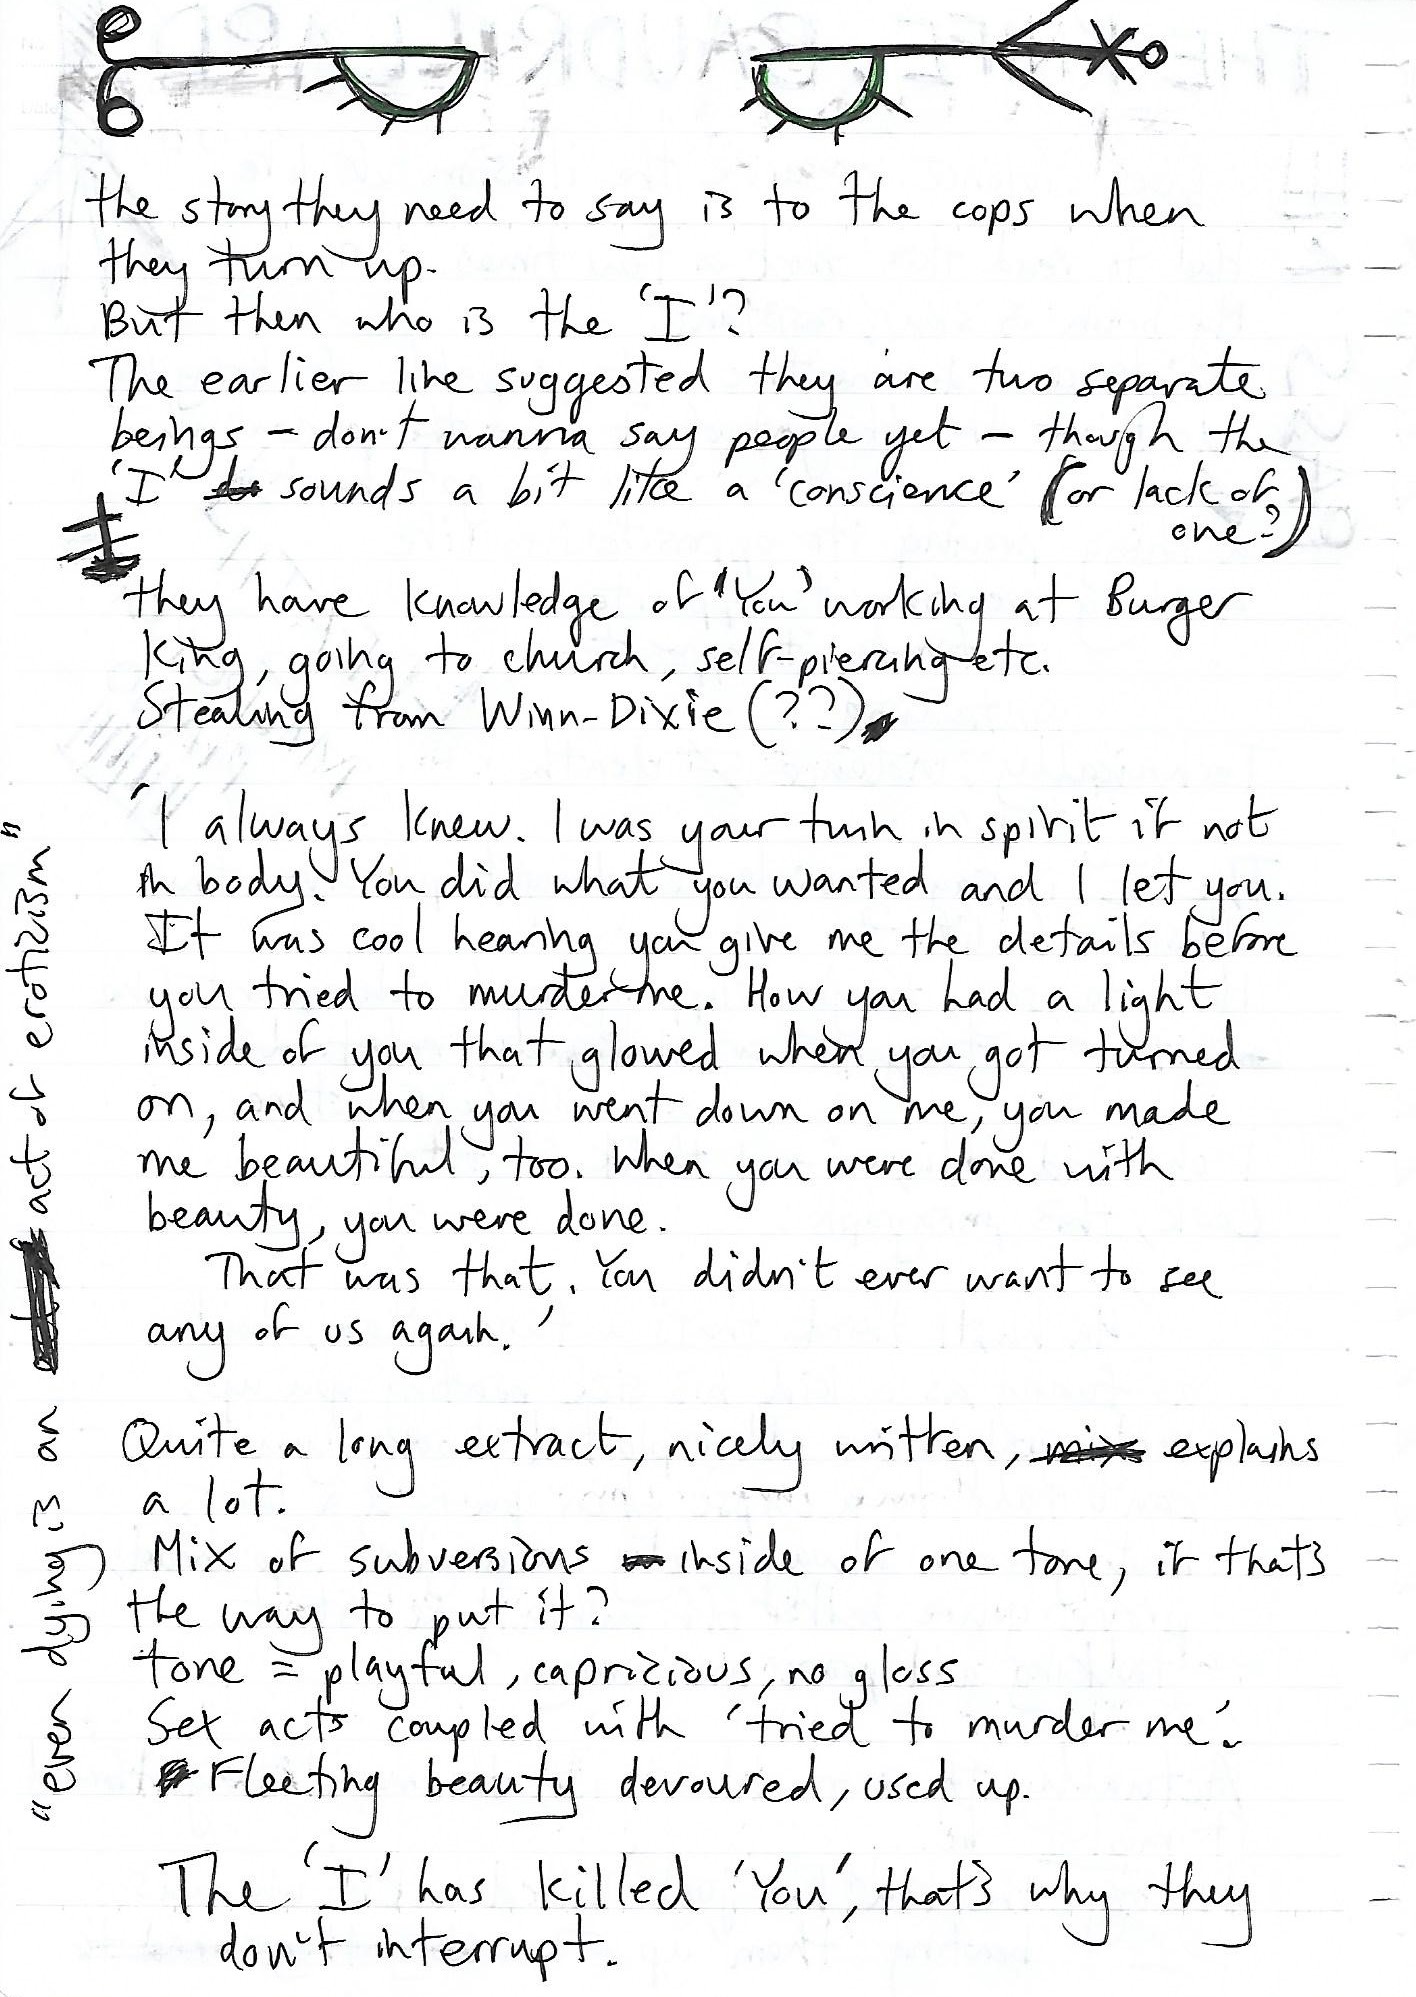 the story they need to say is to the cops when
they turn up.
But then who is the 'I'?
The earlier line suggested they are two separate
beings – don't wanna say people yet – though the
'I' sounds a bit like a 'conscience' (or lack of
one?)
they have knowledge of 'You' working at Burger
King, going to church, self-piercing etc.
Stealing from Winn-Dixie (??).
'I always knew. I was your twin in spirit if not
in body. You did what you wanted and I let you.
It was cool hearing you give me the details before
you tried to murder me. How you had a light
inside of you that glowed when you got turned
on, and when you went down on me, you made
me beautiful, too. When you were done with
beauty, you were done.
That was that. You didn't ever want to see
any of us again.'
Quite a long extract, nicely written, explains
a lot.
Mix of subversions inside of one tone, if that's
the way to put it?
tone = playful, capricious, no gloss
Sex acts coupled with 'tried to murder me'.
Fleeting beauty devoured, used up.
The 'I' has killed 'You', that's why they
don't interrupt.
"even dying is an act of eroticism"